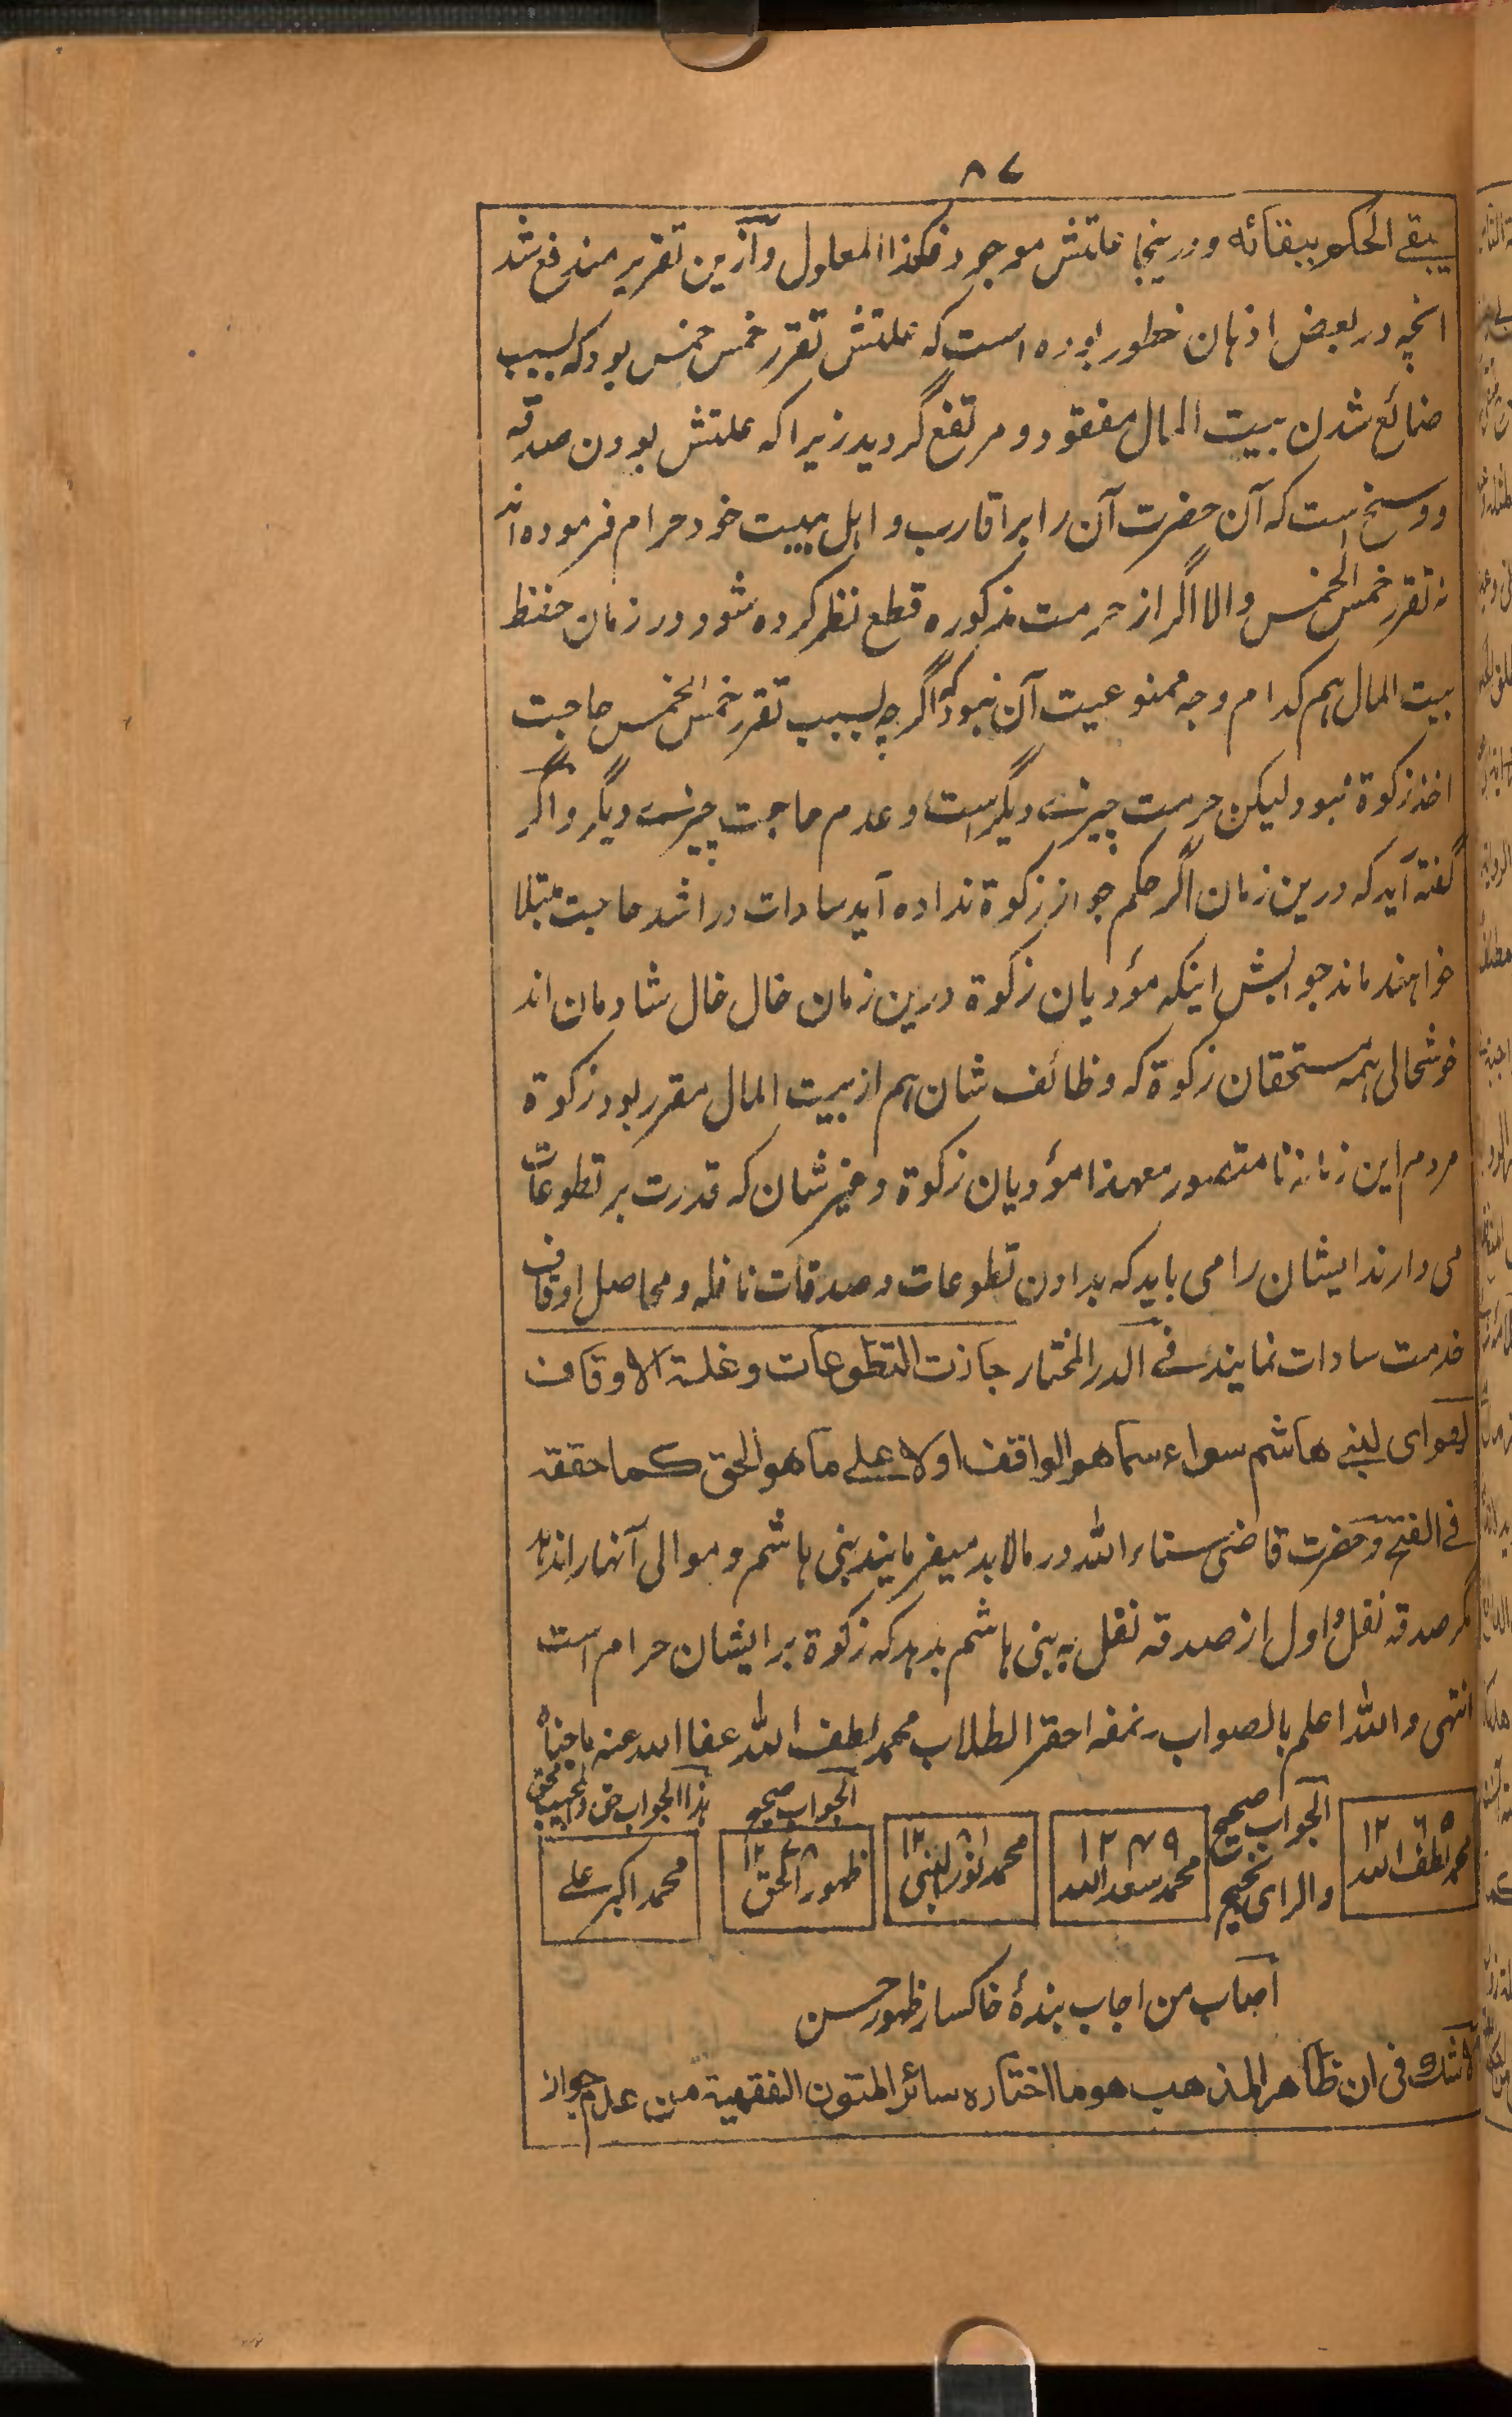 ۸۷
یبقے الحکم ببقائه ودرینجا علتش موجود فکذا المعلول وازین تقریر مندفع شد
انچه در بعض اذهان خطور بوده است که علتش تقرر خمس خمس بود که بسبب
ضائع شدن بیت المال مفقود و مرتفع گردید زیرا که علتش بودن صدقه
ووسخ است که آن حضرت آن را بر اقارب و اہل بیت خود حرام فرموده اند
نه تقرر خمس الخمس والا اگر از حرمت مذکوره قطع نظر کرده شود در زمان حفظ
بیت المال ہم کدام وجه ممنوعیت آن نبود که اگرچه بسبب تقرر خمس الخمس حاجت
اخذ زکوة نبود لیکن حرمت چیزے دیگر است و عدم حاجت چیزے دیگر واگر
گفته آید که درین زمان اگر حکم جواز زکوة نداده آید سادات در اشد حاجت مبتلا
خواہند ماند جوابش اینکه مؤدیان زکوة درین زمان خال خال شادمان اند
خوشحالی ہمه مستحقان زکوة که وظائف شان ہم از بیت المال مقرر بود زکوة
مردم این زمانه نامتصور معہذا مؤدیان زکوة وغیر شان که قدرت بر تطوعات
می دارند ایشان را می باید که بدادن تطوعات و صدقات نافله و محاصل اوقاف
خدمت سادات نمایند فے الدر المختار جازت التطوعات وغلة الاوقاف
لهم ای لبنے هاشم سواء سماهم الواقف اولا علے ما هو الحق کما حققه
فے الفتح وحضرت قاضی ثناء الله در مالابد میفرمایند بنی ہاشم و موالی آنہا را ندہد
مگر صدقه نفل و اول از صدقه نفل به بنی ہاشم بدہد که زکوة بر ایشان حرام است
انتہی والله اعلم بالصواب نمقه احقر الطلاب محمد لطف الله عفا الله عنه ما جناه
محمد لطف الله ۱۲۶۵
الجواب صحیح والرای نجیح
محمد سعد الله ۱۲۷۹
محمد نور النبی ۱۲۸۱
الجواب صحیح
ظهور الحق
ہذا الجواب حق والمجیب محق
محمد اکبر علے
اصاب من اجاب بندۂ خاکسار ظهور حسن
لا شك فی ان ظاهر المذهب هو ما اختاره سائر المتون الفقهیة من عدم جواز